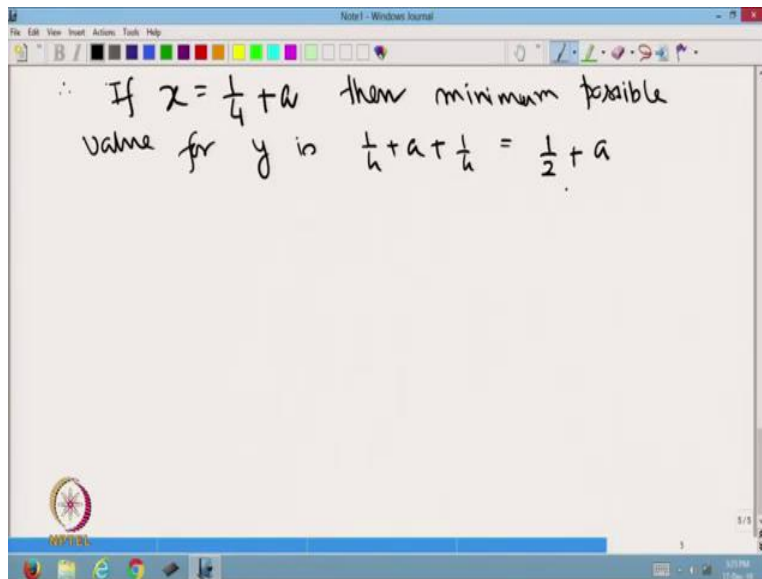 Note1 - Windows Journal
File Edit View Insert Actions Tools Help
∴ If x = 1/4 + a then minimum possible
value for y is 1/4 + a + 1/4 = 1/2 + a
NPTEL
5/5
5
3:25 PM